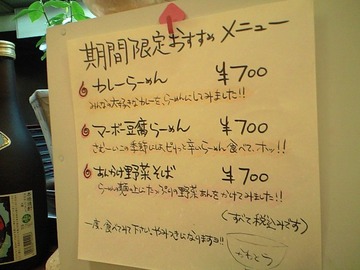 期間限定おすすめメニュー
カレーらーめん ¥700
みんなの大好きなカレーを、らーめんにしてみました!!
マーボー豆腐らーめん ¥700
さむーいこの季節には、ピリッと辛いらーめん食べて、ホッ!!
あんかけ野菜そば ¥700
らーめん麺の上にたっぷりの野菜あんをかけてみました!!
(すべて税込みです)
一度、食べてみて下さい。やみつきになりますョ!!